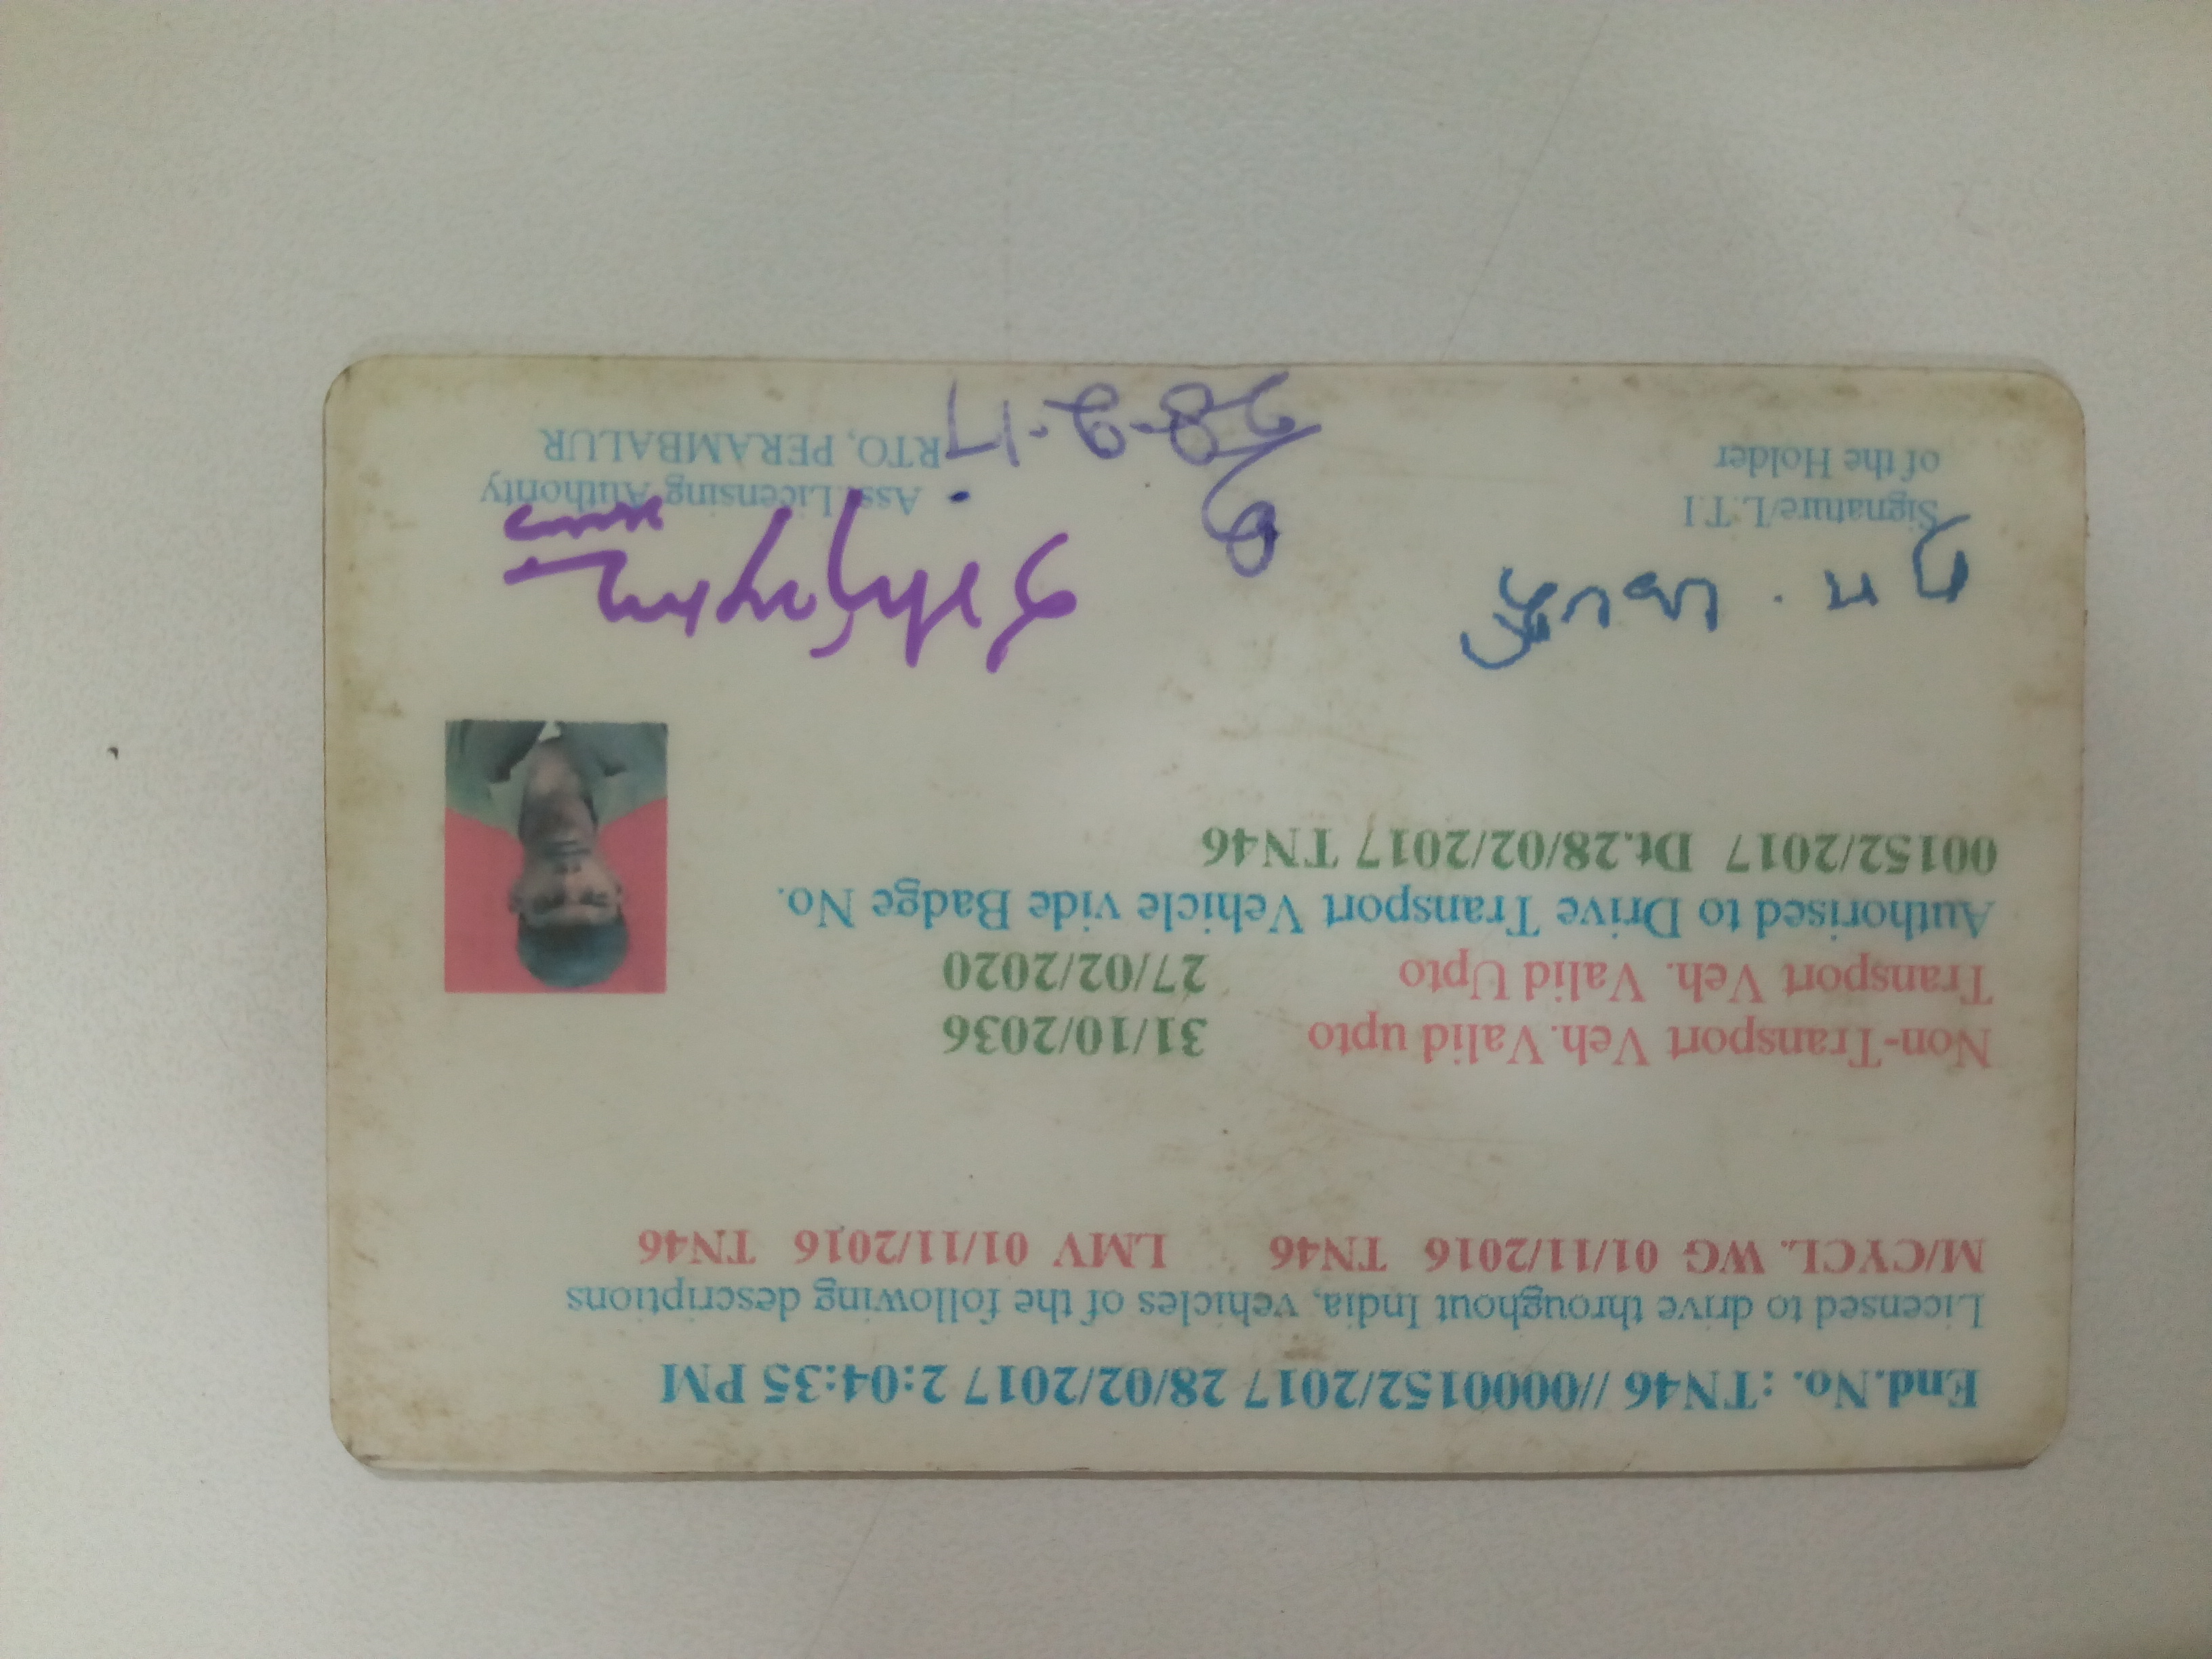 End.No. : TN46 //0000152/2017 28/02/2017 2:04:35 PM
Licensed to drive throughout India, vehicles of the following descriptions
M/CYCL. WG 01/11/2016 TN46 LMV 01/11/2016 TN46
Non-Transport Veh.Valid upto 31/10/2036
Transport Veh. Valid Upto 27/02/2020
Authorised to Drive Transport Vehicle vide Badge No.
00152/2017 Dt.28/02/2017 TN46
Signature/L.T.I
of the Holder
28-2-17
Asst Licensing Authority
RTO, PERAMBALUR